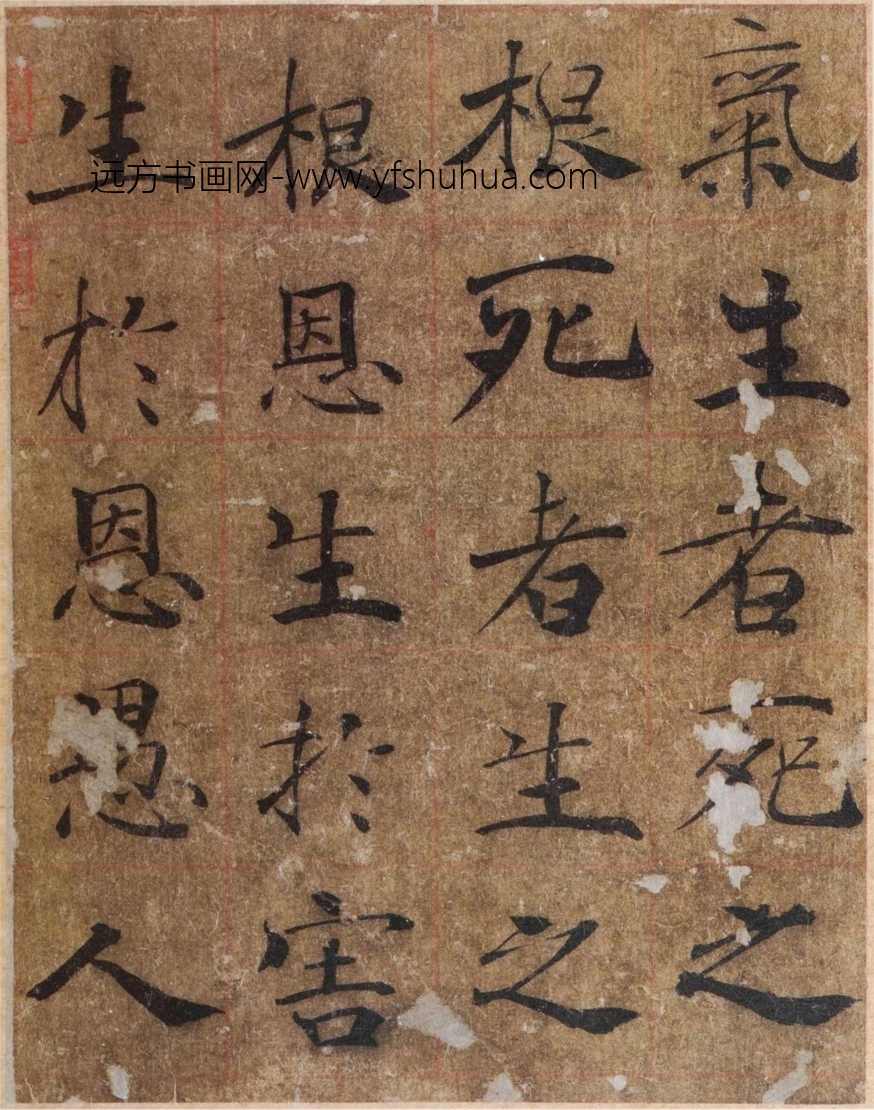 氣生者死之
根死者生之
根恩生於害
生於恩愚人
远方书画网-www.yfshuhua.com